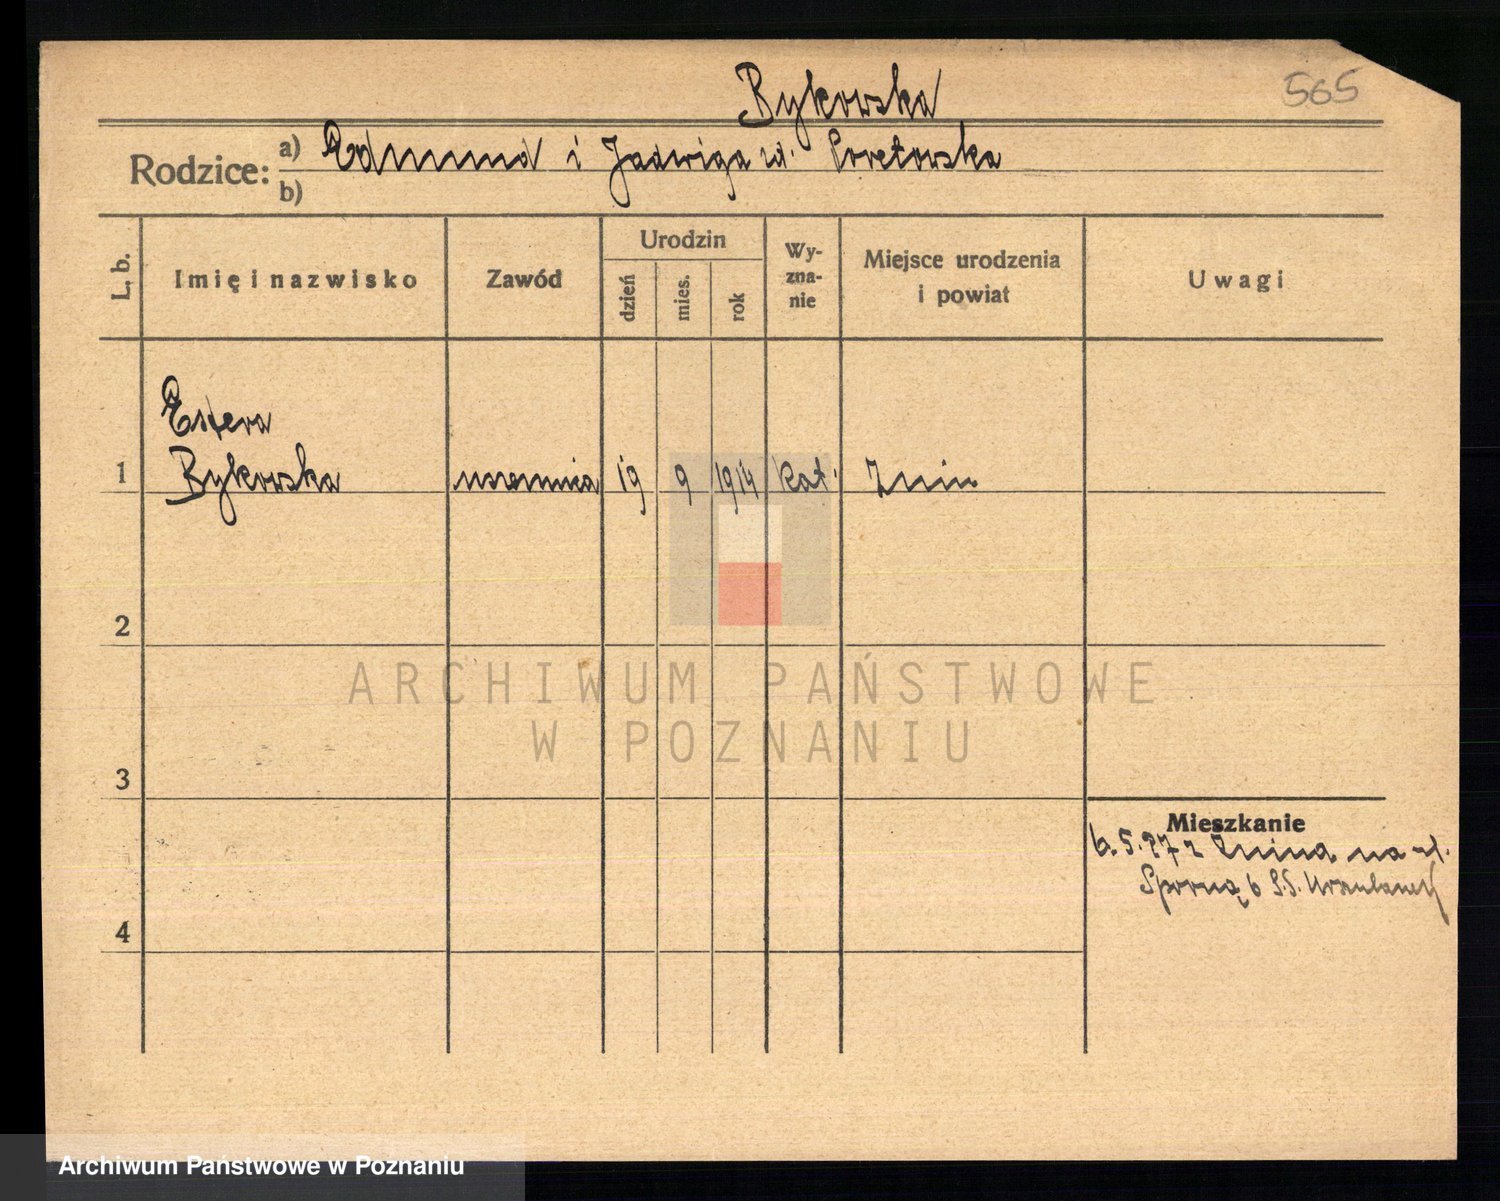 Bykowska
565
Rodzice: a) Edmund i Jadwiga zd. Poretowska
b)
L. b.
Imię i nazwisko
Zawód
Urodzin
dzień
mies.
rok
Wy-
zna-
nie
Miejsce urodzenia
i powiat
Uwagi
Estera
1 Bykowska uczennica 19 9 1914 kat. Znin
2
ARCHIWUM PAŃSTWOWE
W POZNANIU
3
Mieszkanie
6.5.27 z Żnina na ul.
Sporną 6 S.S. Urszulanek
4
Archiwum Państwowe w Poznaniu